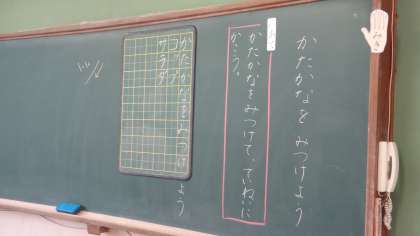 かたかなを みつけよう
めあて
かたかなをみつけて、ていねいに
かこう。
かたかなをみつけよう
コップ
サラダ
みぎ